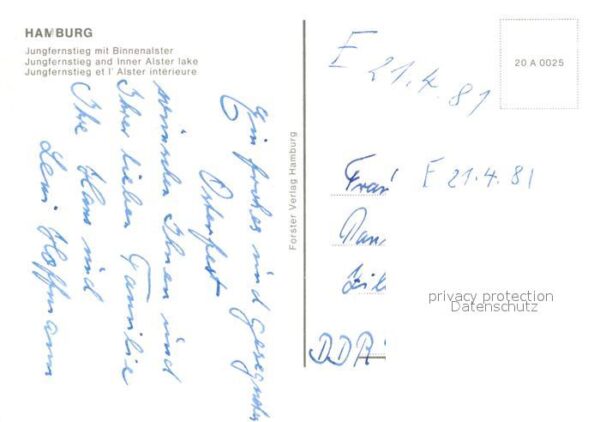 HAMBURG
Jungfernstieg mit Binnenalster
Jungfernstieg and Inner Alster lake
Jungfernstieg et l' Alster intérieure
Ein frohes und gesegnetes
Osterfest
wünschen Ihnen und
Ihrer lieben Familie
Ihre Hans und
Hoffmann
Forster Verlag Hamburg
E 21.4.81
20 A 0025
Frau
E 21.4.81
DDR
privacy protection
Datenschutz